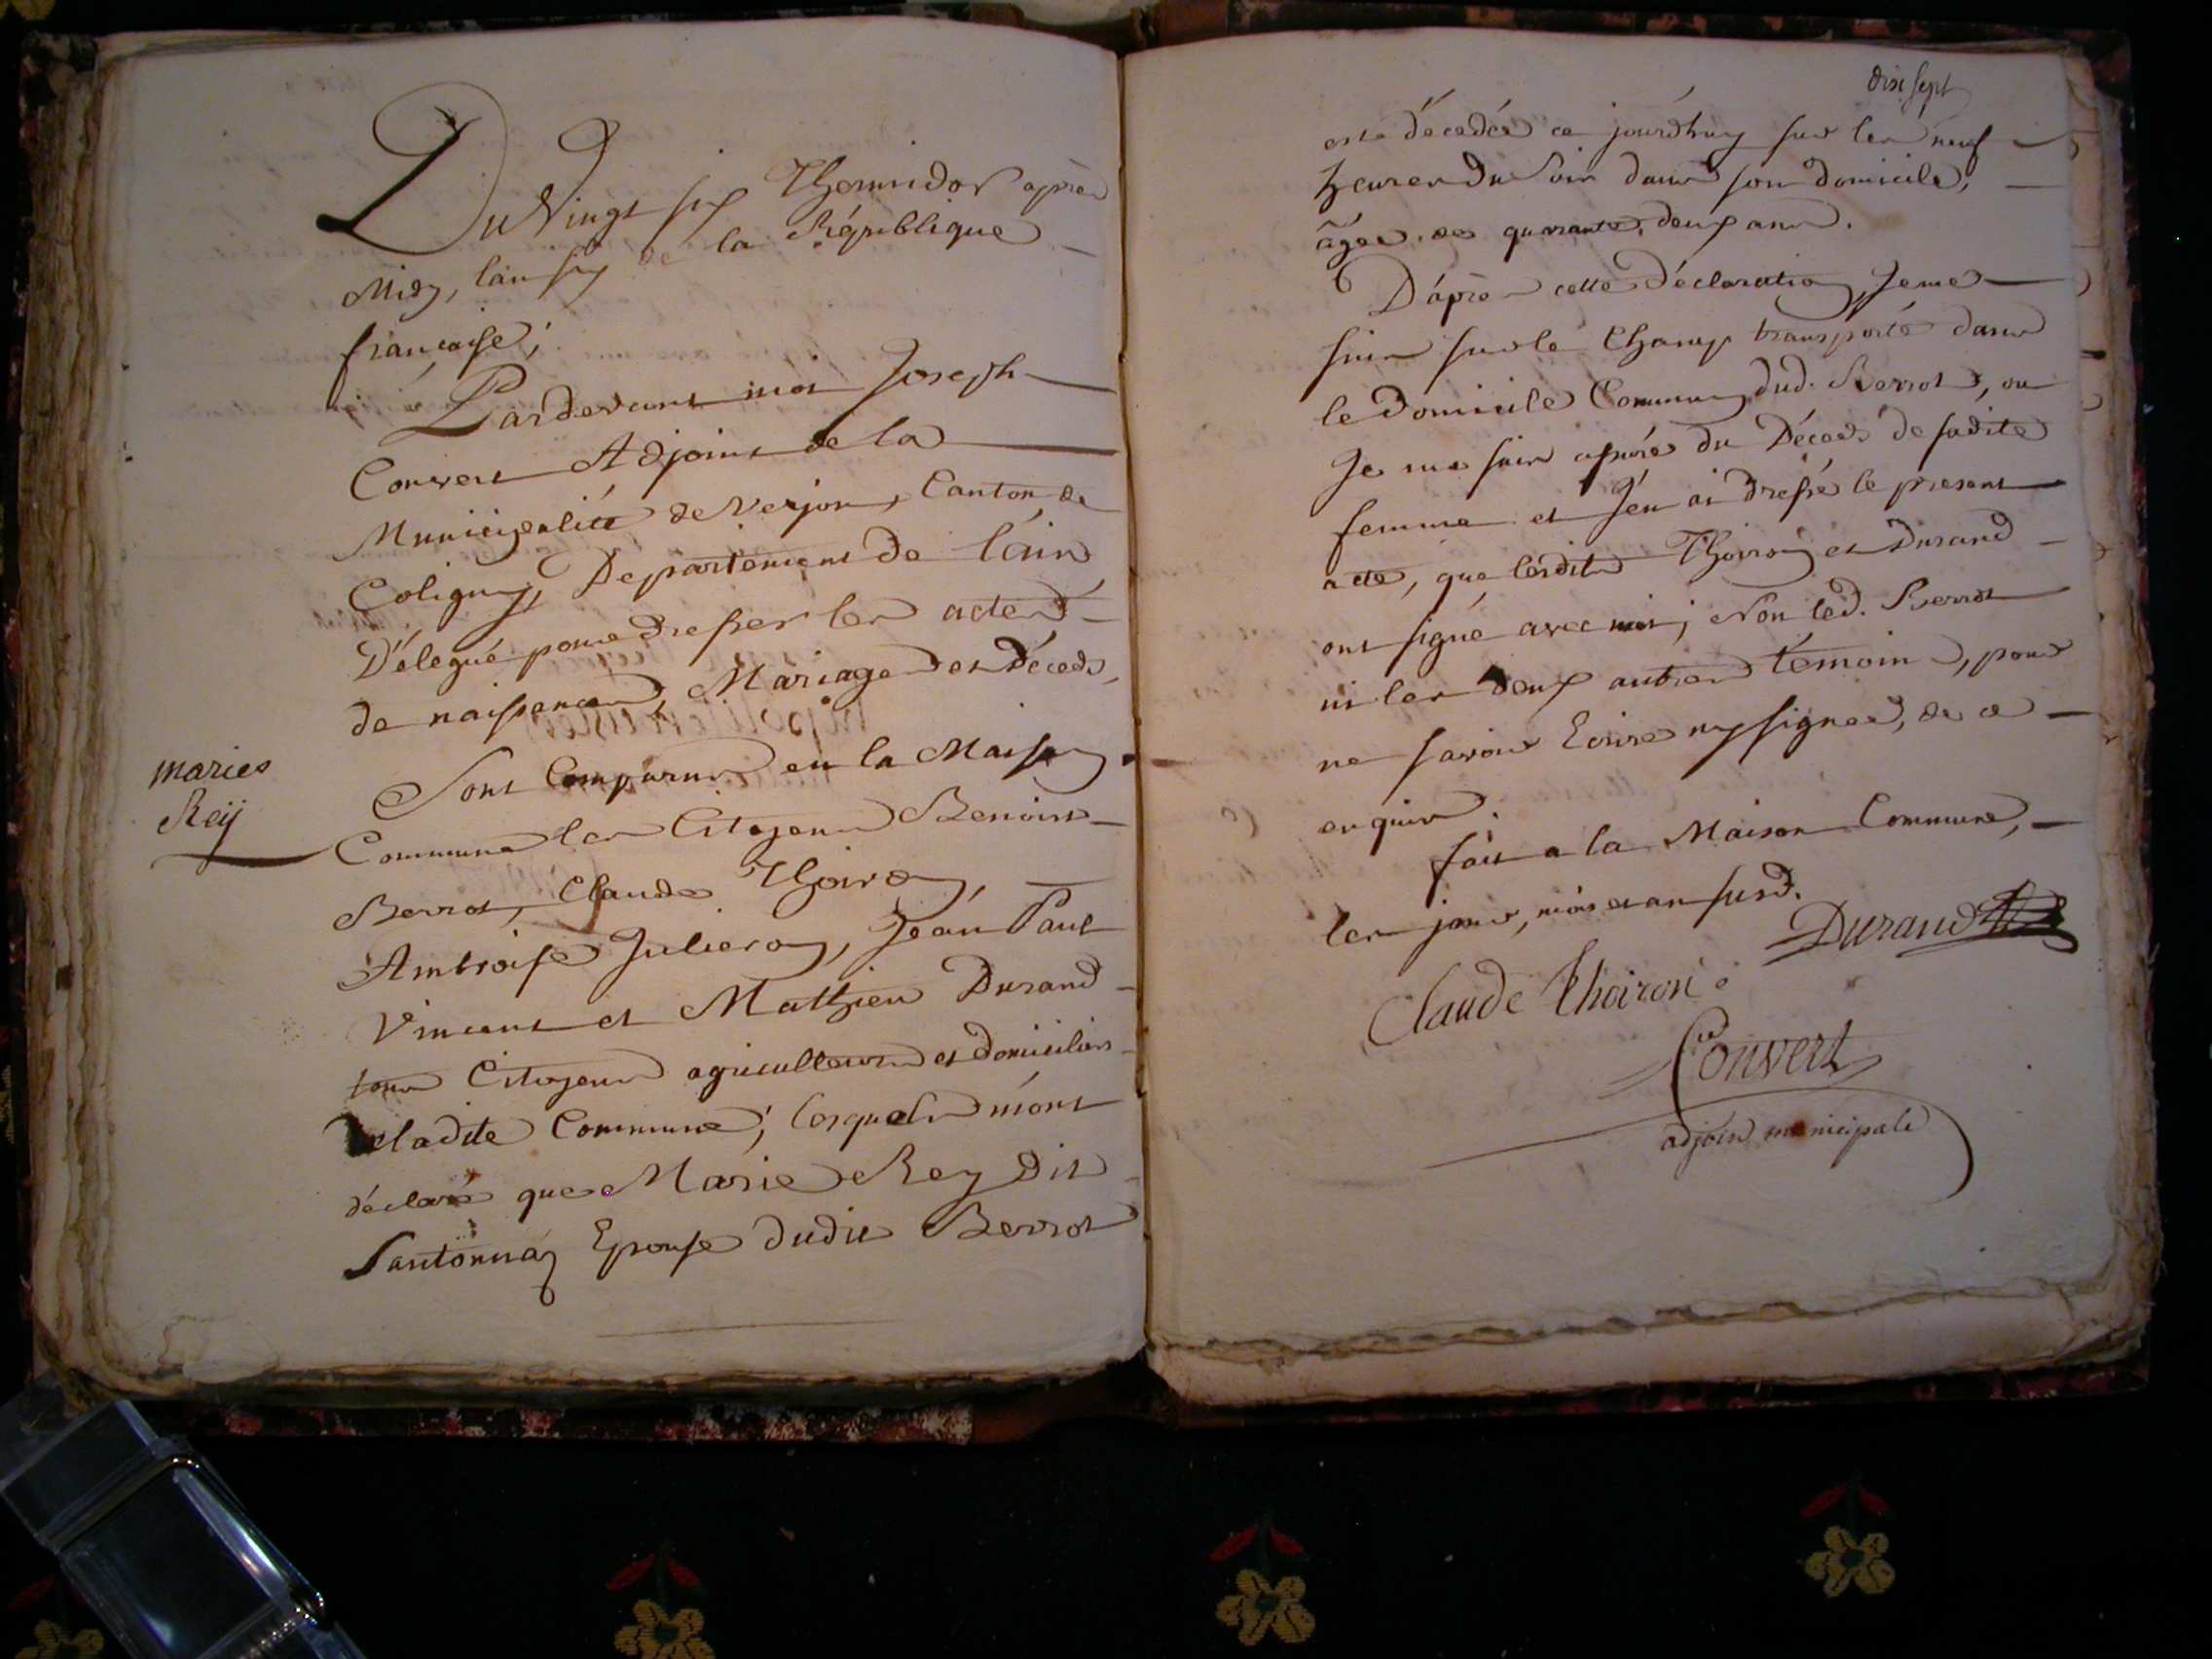 Du Vingt six Thermidor après
Midy, l'an six de la République
française;
Pardevant moi Joseph
Convert Adjoint de la
Municipalité de Verjon, Canton de
Coligny, Departement de l'ain
Délegué pour dresser les actes
de naissances, Mariages et Déceds,
Sont Comparus en la Maison
maries
Reÿ
Commune les Citoyens Benoist
Berrot, Claude Thoiron,
Ambroise Julieron, Jean Paul
Vincent et Mathieu Durand
tous Citoyens agriculteurs et domiciliers
de ladite Commune; lesquels m'ont
déclaré que Marie Rey dit
Santonnaz Epouse dudit Berrot
dix sept
este décedée ce jourd'huy sur les neuf
heures du Soir dans son domicile,
âgée de quarante deux ans.
D'après cette déclaration, Je me
suis sur le Champ transporté dans
le domicile Commun dud. Berrot, ou
Je me suis assuré du Déceds de sadite
femme et J'en ai dressé le present
acte, que lesdits Thoiron et Durand
ont signé avec moi; Non led. Berrot
ni les deux autres témoins, pour
ne savoir Ecrire ny signer, de ce
enquis.
fait a la Maison Commune,
les jour, mois et an susd.
Durand
Claude thoiron
Convert
adjoin municipale